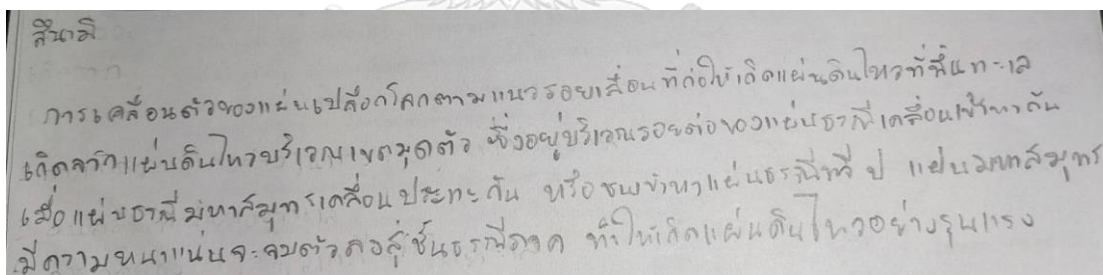 สึนามิ
การเคลื่อนตัวของแผ่นเปลือกโลกตามแนวรอยเลื่อนที่ก่อให้เกิดแผ่นดินไหวที่พื้นทะเล
เกิดจากแผ่นดินไหวบริเวณเขตมุดตัว ซึ่งอยู่บริเวณรอยต่อของแผ่นธรณีเคลื่อนเข้าหากัน
เมื่อแผ่นธรณีมหาสมุทรเคลื่อนประทะกัน หรือชนเข้าหาแผ่นธรณีทวีป แผ่นมหาสมุทร
มีความหนาแน่นจะจมตัวลงสู่ชั้นธรณีภาค ทำให้เกิดแผ่นดินไหวอย่างรุนแรง